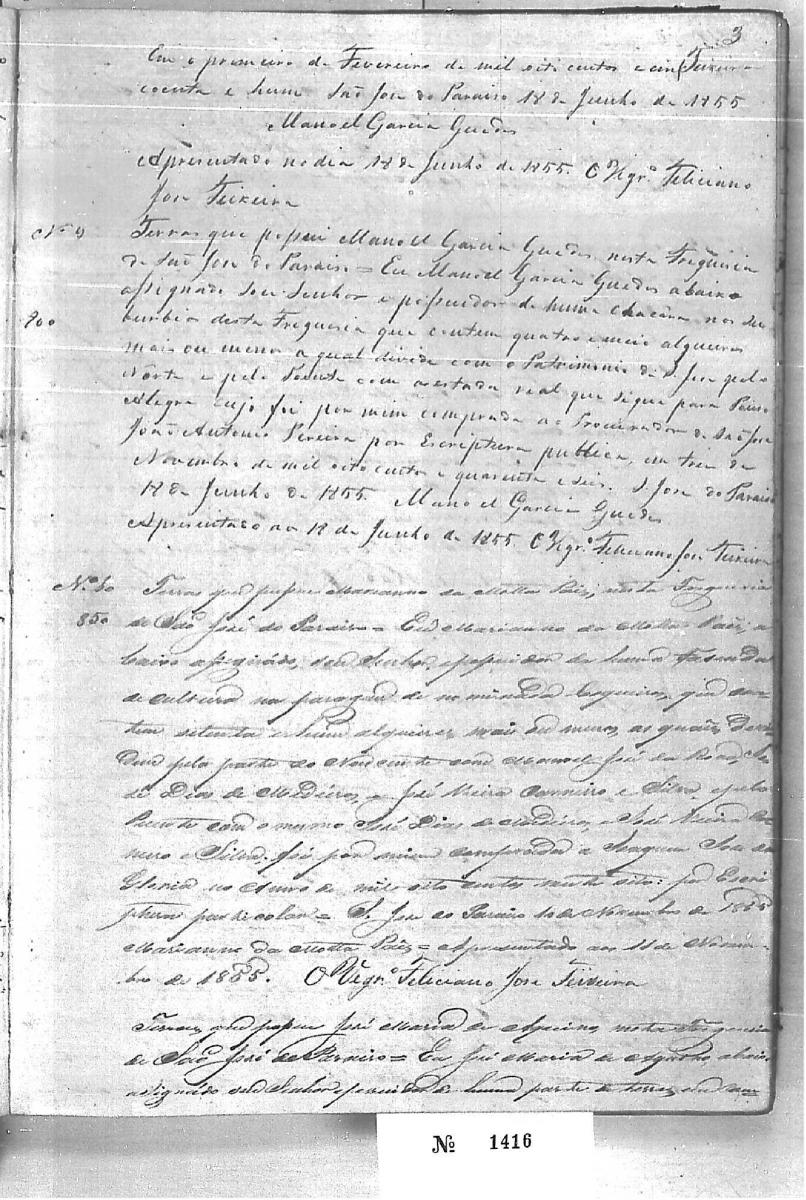 3
Em o primeiro de Fevereiro de mil oito centos e cin Teixeira
coenta e hum São Jose do Paraiso 18 de Junho de 1855
Manoel Garcia Guedes
Apresentado no dia 18 de Junho de 1855. O Vigr.º Feliciano
Jose Teixeira
Terras que possui Manoel Garcia Guedes nesta Fregueia
de São Jose do Paraiso = Eu Manoel Garcia Guedes abaixo
assignado sou Senhor e possuidor de huma chacara nos su
burbios desta Freguesia que contem quatro e meio alqueires
900
mais ou menos a qual divide com o Patrimonio de S. Jose pelo
Nórte e pelo Poente com a estrada real que segue para Pouso
Alegre cujo foi por mim comprada ao Procurador de São Jose
João Antonio Pereira por Escriptura publica, em tres de
Novembro de mil oito centos e quarenta e seis. S. Jose do Paraiso
18 de Junho de 1855. Manoel Garcia Guedes
Apresentado ao 18 de Junho de 1855. O Vigr.º Feliciano Jose Teixeira
N.º 10
Terras que possue Marianno da Motta Paes, nesta Freguesia
850
de São José do Paraiso = Eu Marianno da Motta Paes, a
baixo assignádo, sou Senhor, e possuidor de huma Fasenda
de cultura na paragem denominada que con
tem setenta e hum alqueires mais ou menos, as quaes devi
dem pela parte do Nascente com Manoel José da Rosa, Jo
sé Dias de Medeiros, e José Vieira Carneiro e Silva, e pelo
Puente com o mesmo José Dias de Medeiros, e José Vieira Car
neiro e Silva, foi por mim comprada a Joaquim Jose da
Gloria no Anno de mil oito centos vinte oito: por Escri
ptura particolar = S. Jose do Paraiso 10 de Novembro de 1855
Marianno da Motta Paes = Apresentado aos 11 de Novem-
bro de 1855. O Vigr.º Feliciano Jose Teixeira
Terras, que possue José Maria de Aquino, nesta Freguesia
de São José do Paraiso = Eu José Maria de Aquino, abaixo
assignádo sou Senhor e possuidor de huma parte de terras,
№ 1416